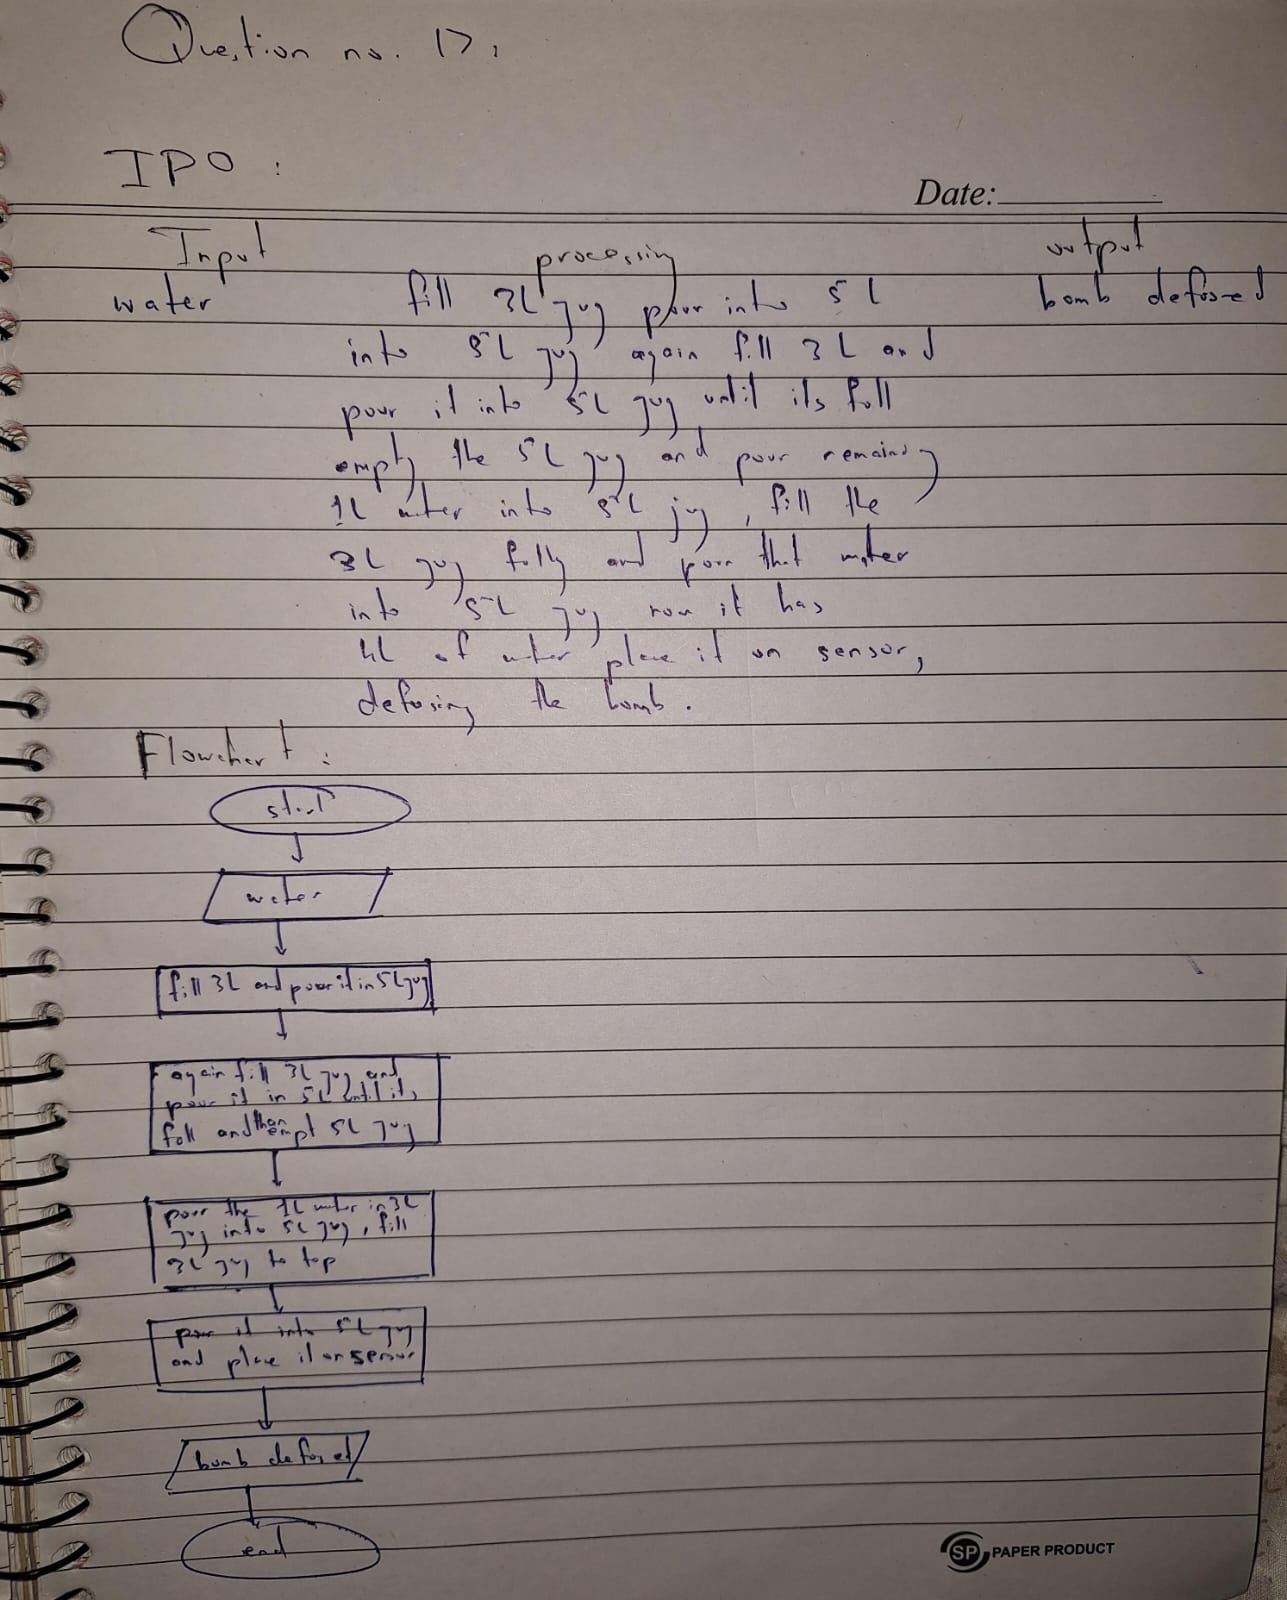 Question no. 17:
IPO :
Date:
Input processing output
water fill 3L jug pour into 5L bomb defused
into 5L jug again fill 3L and
pour it into 5L jug until its full
empty the 5L jug and pour remaing
1L water into 5L jug, fill the
3L jug fully and pour that water
into 5L jug now it has
4L of water place it on sensor,
defusing the bomb.
Flowchart :
start
water
fill 3L and pour it in 5L jug
again fill 3L jug and
pour it in 5L until its
full and then empt 5L jug
pour the 1L water in 3L
jug into 5L jug, fill
3L jug to top
pour it into 5L jug
and place it on sensor
bomb defused
end
SP PAPER PRODUCT